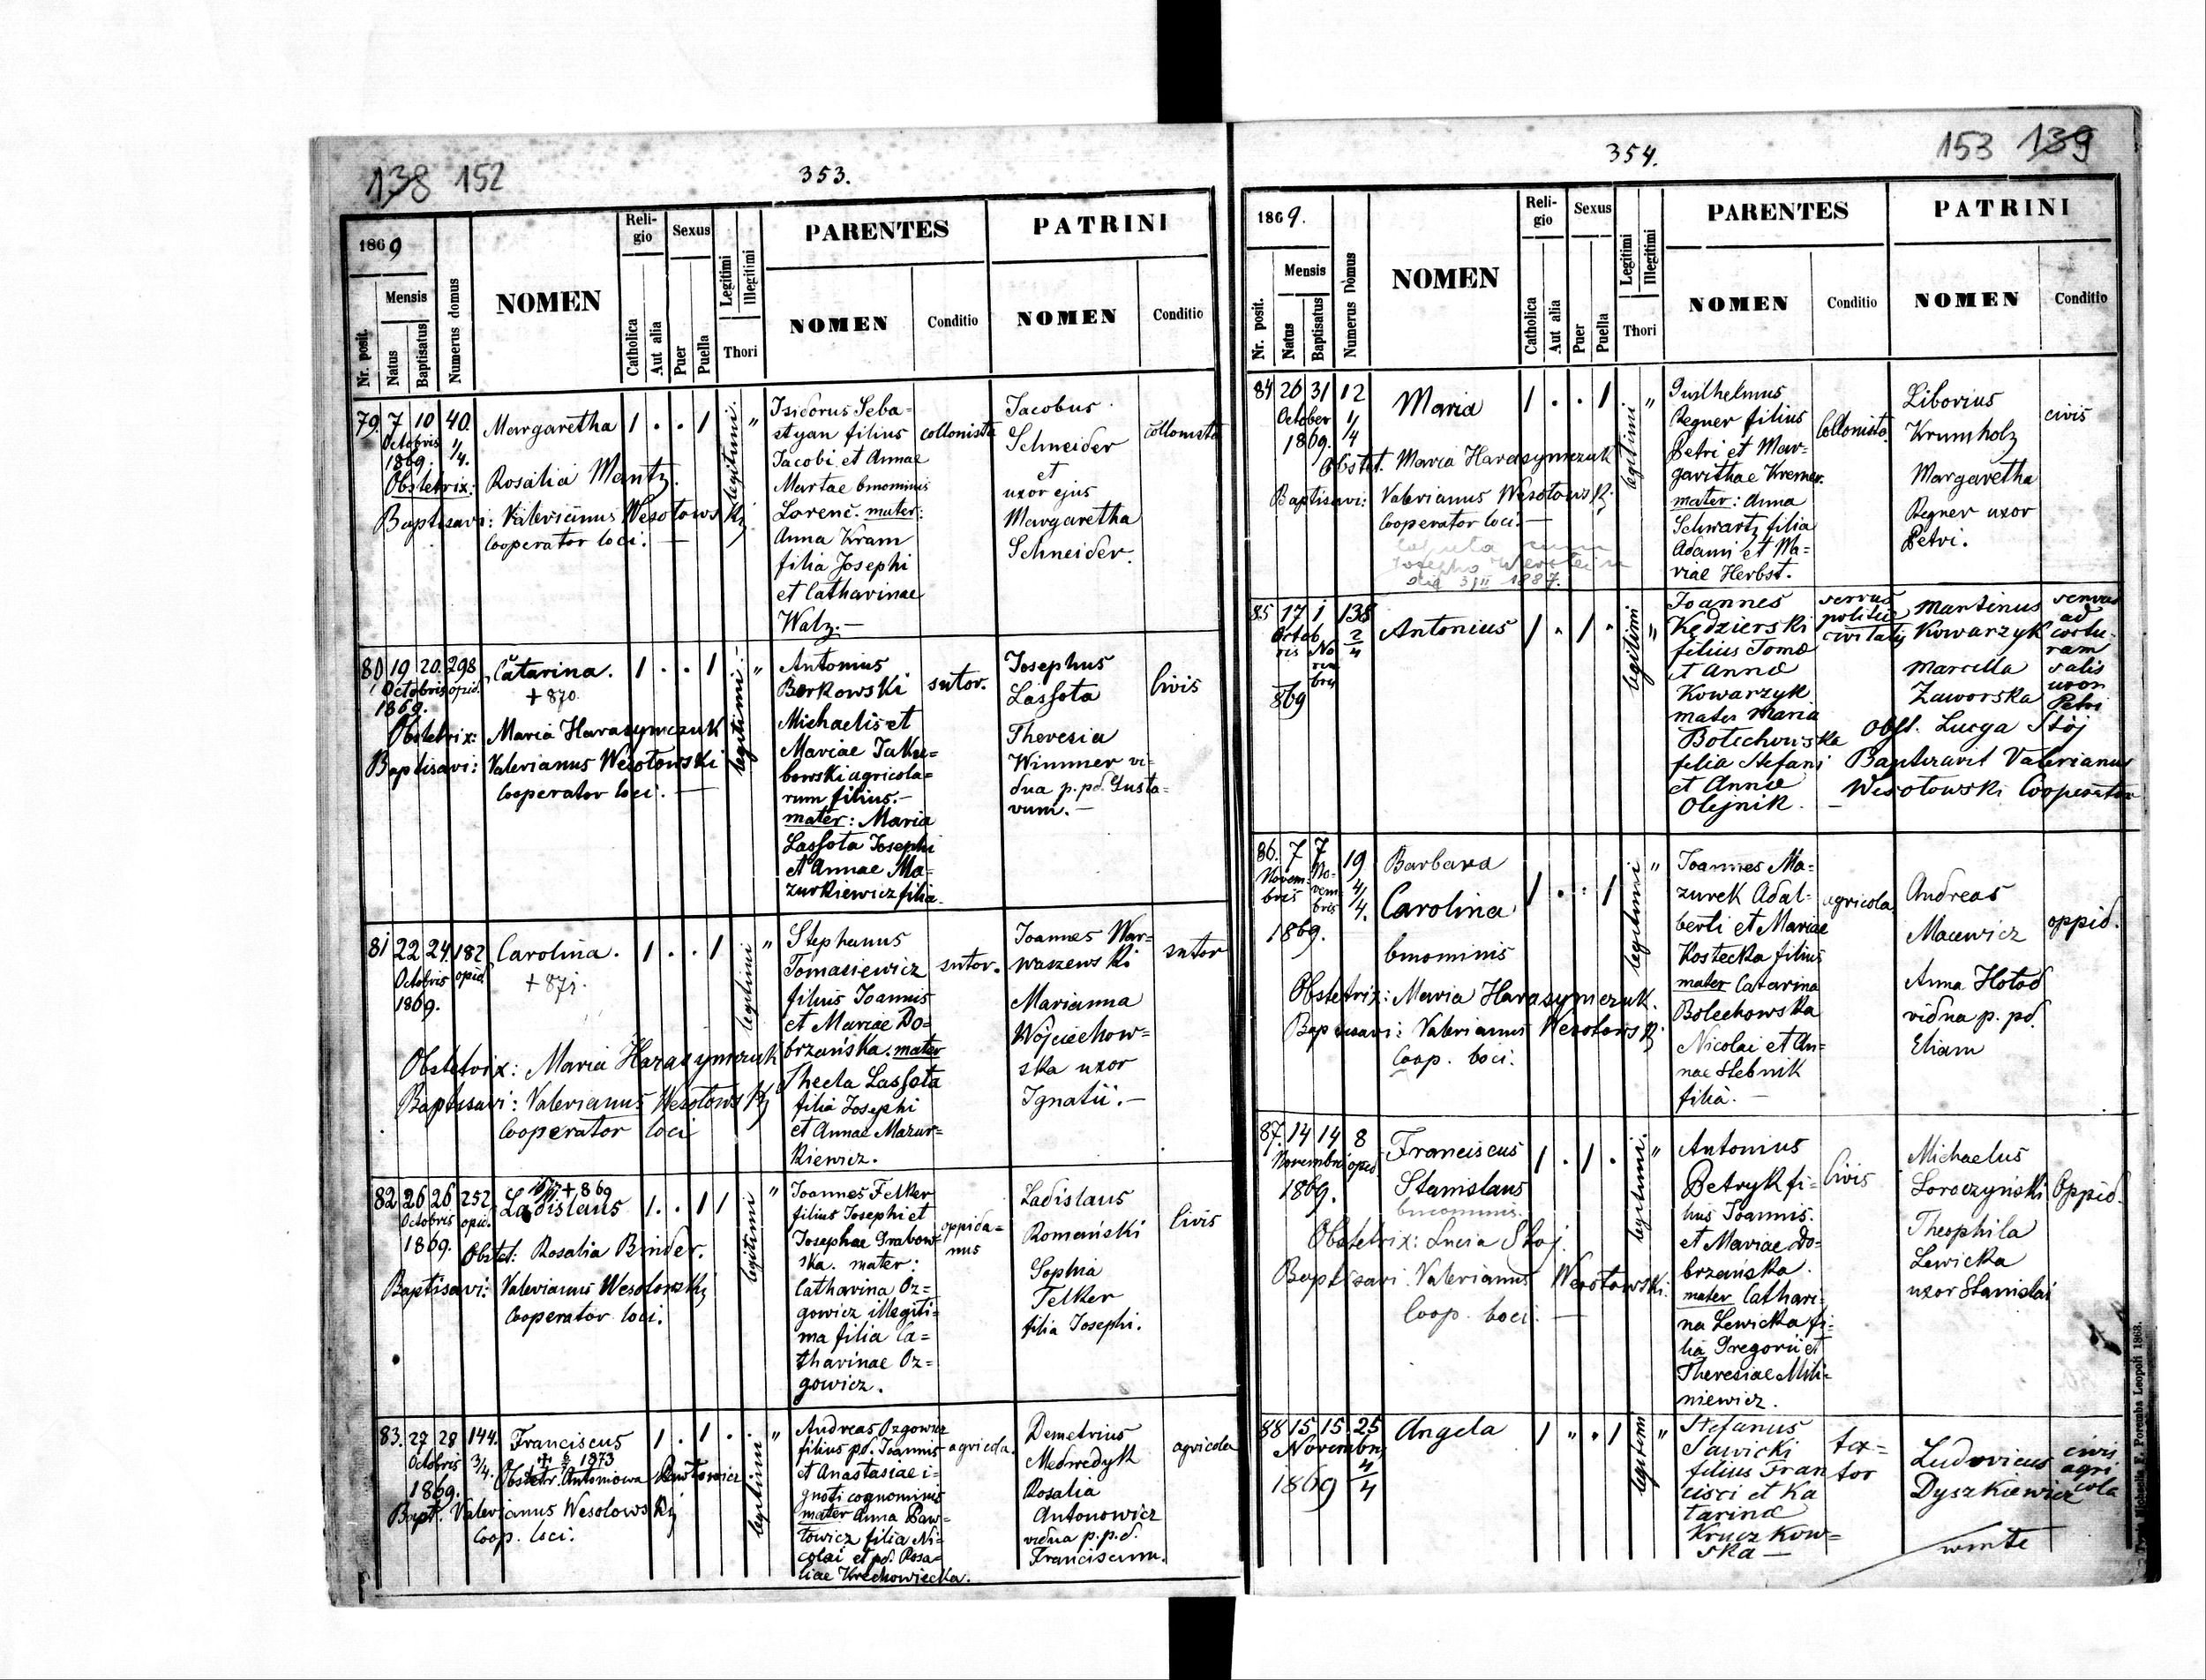 138 152
353.
1869
Nr. posit.
Mensis
Natus
Baptisatus
Numerus domus
NOMEN
Religio
Catholica
Aut alia
Sexus
Puer
Puella
Legitimi
Illegitimi
Thori
PARENTES
NOMEN
Conditio
PATRINI
NOMEN
Conditio
79. 7 10 40.
Octobris 1/4.
1869.
Margaretha
1 . . 1
legitimi. "
Obstetrix: Rosalia Mantz.
Baptisavi: Valerianus Wesołowskj
Cooperator loci. —
Isidorus Seba=
styan filius
Jacobi et Annae
Martae bmominis
Lorenc. mater:
Anna Kram
filia Josephi
et Catharinae
Walz. —
collonista
Jacobus
Schneider
et
uxor ejus
Margaretha
Schneider.
collonista
80 19 20. 298
Octobris opid.
1869.
Catarina.
+ 870.
1 . . 1
legitimi. "
Obstetrix: Maria Harasymczuk
Baptisavi: Valerianus Wesołowski
Cooperator loci. —
Antonius
Borkowski
Michaelis et
Mariae Jaku=
bowski agricola=
rum filius. —
mater: Maria
Lassota Josephi
et Annae Ma=
zurkiewicz filia.
sutor.
Josephus
Lassota
Theresia
Wimmer vi=
dua p. pd. Gusta=
vum. —
Civis
81 22 24. 182
Octobris opid.
1869.
Carolina.
+ 871.
1 . . 1
legitimi "
Obstetrix: Maria Harasymczuk
Baptisavi: Valerianus Wesołowskj
Cooperator loci
Stephanus
Tomasiewicz
filius Joannis
et Mariae Do=
brzańska. mater
Thecla Lassota
filia Josephi
et Annae Mazur=
kiewicz.
sutor.
Joannes War=
waszewski
Marianna
Wojciechow=
ska uxor
Ignatii. —
sutor
82 26 26 252
Octobris opid.
1869.
+ 869
Ladislaus
1 . . 1 1
legitimi "
Obstet: Rosalia Binder.
Baptisavi: Valerianus Wesołowskj
Cooperator loci.
Joannes Felker
filius Josephi et
Josephae Grabow=
ska. mater:
Catharina Oz=
gowicz illegiti=
ma filia Ca=
tharinae Oz=
gowicz.
oppida=
nus
Ladislaus
Romański
Sophia
Felker
filia Josephi.
Civis
83. 27 28 144.
Octobris 3/4.
1869.
Franciscus
1873
1 . 1 .
legitimi "
Obstetr. Antoniowa Pawłowicz
Bapt. Valerianus Wesołowskj
Coop. loci.
Andreas Ozgowicz
filius pd. Joannis
et Anastasiae i=
gnoti cognominis
mater Anna Paw=
łowicz filia Ni=
colai et pd. Rosa=
liae Krechowiecka.
agricola.
Demetrius
Medwedyk
Rosalia
Antonowicz
vidua p.p.d.
Franciscum.
agricola
354.
153 139
1869.
Nr. posit.
Mensis
Natus
Baptisatus
Numerus Domus
NOMEN
Religio
Catholica
Aut alia
Sexus
Puer
Puella
Legitimi
Illegitimi
Thori
PARENTES
NOMEN
Conditio
PATRINI
NOMEN
Conditio
84 26 31 12
October 1/4
1869.
Maria
1 . . 1
legitimi "
Obstet. Maria Harasymczuk
Baptisavi: Valerianus Wesołowskj
Cooperator loci. —
1887.
Guilhelmus
Regner filius
Petri et Mar=
garithae Kremer.
mater: Anna
Schwartz filia
Adami et Ma=
riae Herbst.
Collonista
Liborius
Krumholz
Margaretha
Regner uxor
Petri.
civis
85 17 1 138
Octobris Novembris 2/4
869
Antonius
1 . 1 .
legitimi "
Joannes
Kędzierski
filius Toma
et Anna
Kowarzyk
mater Maria
Bolechowska
filia Stefani
et Annae
Olejnik. —
servus
politiae
civitatis
Martinus
Kowarzyk
Marcella
Zaworska
servus
ad
coctu=
ram
salis
uxor
Petri
Obst. Lucya Stój
Baptizavit Valerianus
Wesołowski Cooperator
86. 7 7 19
Novembris Novembris 4/4.
1869.
Barbara
Carolina
bmominis
1 . . 1
legitimi "
Obstetrix: Maria Harasymczuk.
Baptisavi: Valerianus Wesołowskj
Coop. loci.
Joannes Ma=
zurek Adal=
berti et Mariae
Kostecka filius
mater Catarina
Bolechowska
Nicolai et An=
nae Stebnik
filia. —
agricola
Andreas
Macewicz
Anna Hołod
vidua p. pd.
Eliam
oppid.
87. 14 14 8
Novembris opid.
1869.
Franciscus
Stanislaus
bmominis.
1 . 1 .
legitimi. "
Obstetrix: Lucia Stoj.
Baptisavi Valerianus Wesołowski.
Coop. loci. —
Antonius
Petryk fi=
lius Joannis.
et Mariae Do=
brzańska.
mater Cathari=
na Lewicka fi=
lia Gregorii et
Theresiae Mili=
niewicz.
Civis
Michaelus
Soroczyński
Theophila
Lewicka
uxor Stanislai
Oppid.
88 15. 15. 25
Novembris 4/4
1869
Angela
1 " . 1
legitimi "
Stefanus
Sawicki
filius Fran
cisci et Ka
tarina
Kruczkow=
ska —
tex=
tor
Ludovicus
Dyszkiewicz
civis
agri
cola
Typis Michaelis F. Poremba Leopoli 1868.